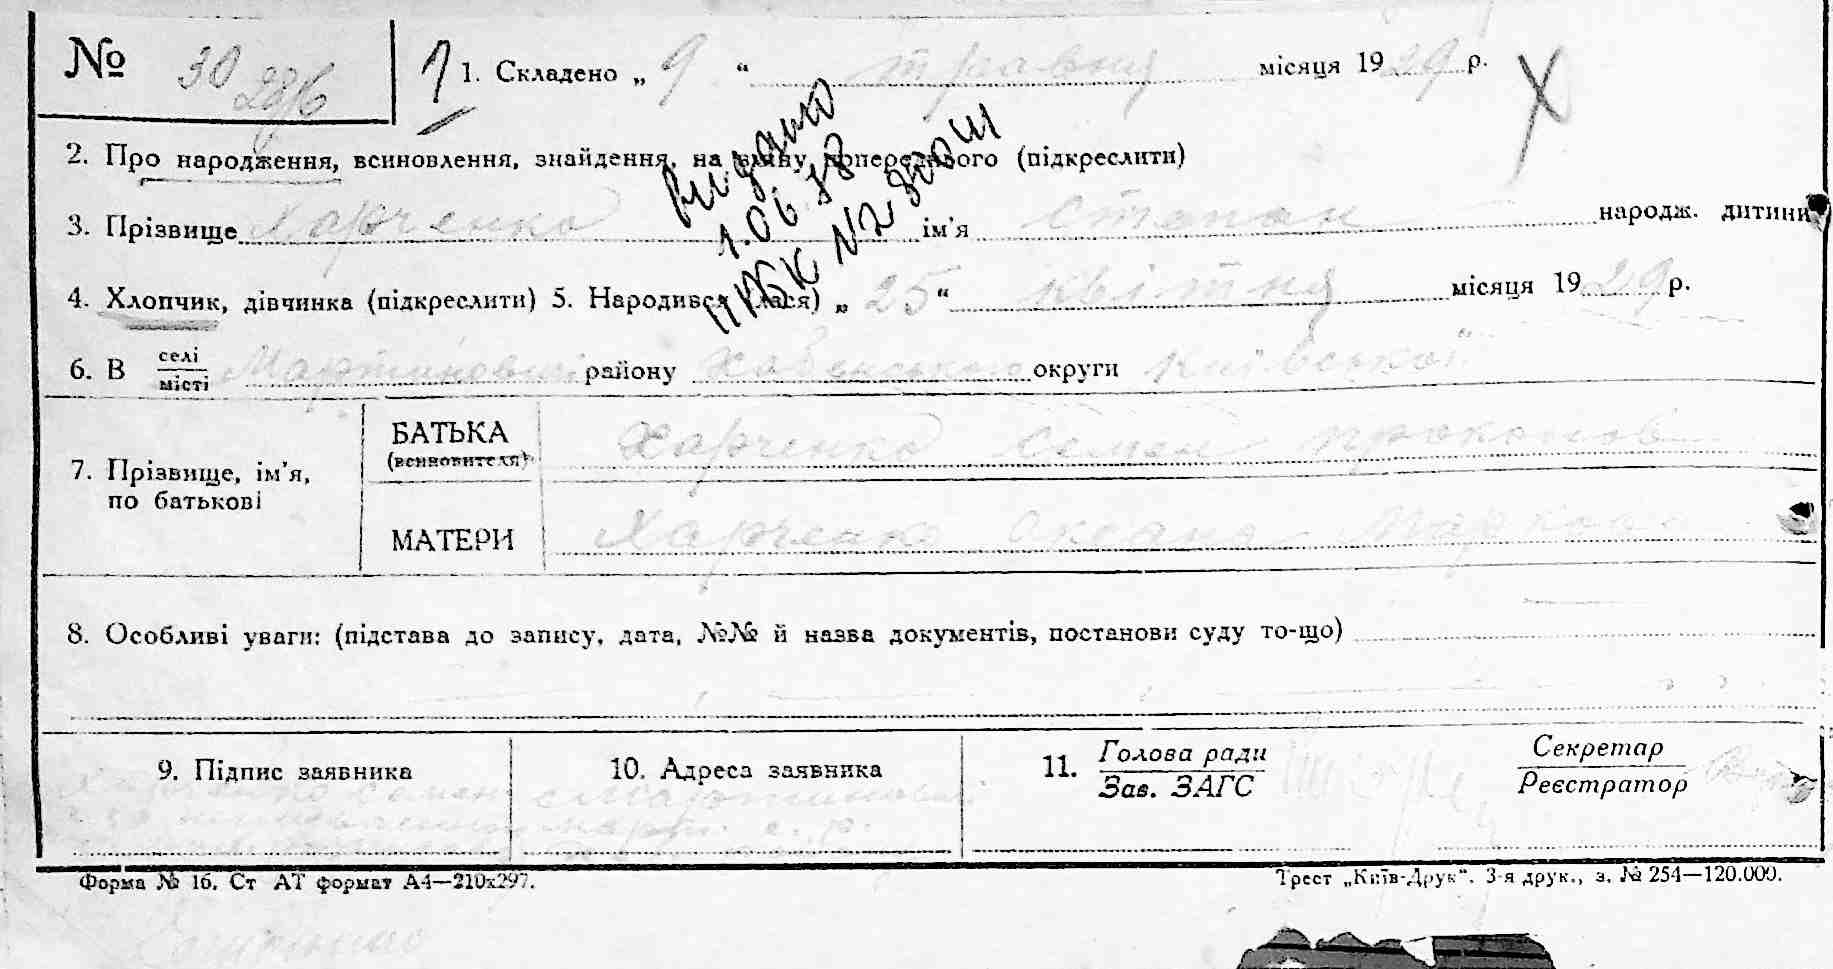 № 30 286
1. Складено „ 9 “ травня місяця 1929 р.
2. Про народження, всиновлення, знайдення, на зміну попереднього (підкреслити)
видано
1.06.78
ІІ-БК №
3. Прізвище Харченко ім'я Степан народж. дитини
4. Хлопчик, дівчинка (підкреслити) 5. Народився (лася) „ 25 “ квітня місяця 1929 р.
6. В селі/місті Мартинович району Хабенського округи Київської
7. Прізвище, ім'я, по батькові
БАТЬКА (всиновителя) Харченко Семен Прокопов
МАТЕРИ Харченко Оксана Марков
8. Особливі уваги: (підстава до запису, дата, №№ й назва документів, постанови суду то-що)
9. Підпис заявника
10. Адреса заявника
11. Голова ради / Зав. ЗАГС
Секретар / Реєстратор
Харченко Семен с. Мартинович
Форма № 16. Ст АТ формат А4—210х297.
Трест „Київ-Друк“. 3-я друк., з. № 254—120.000.